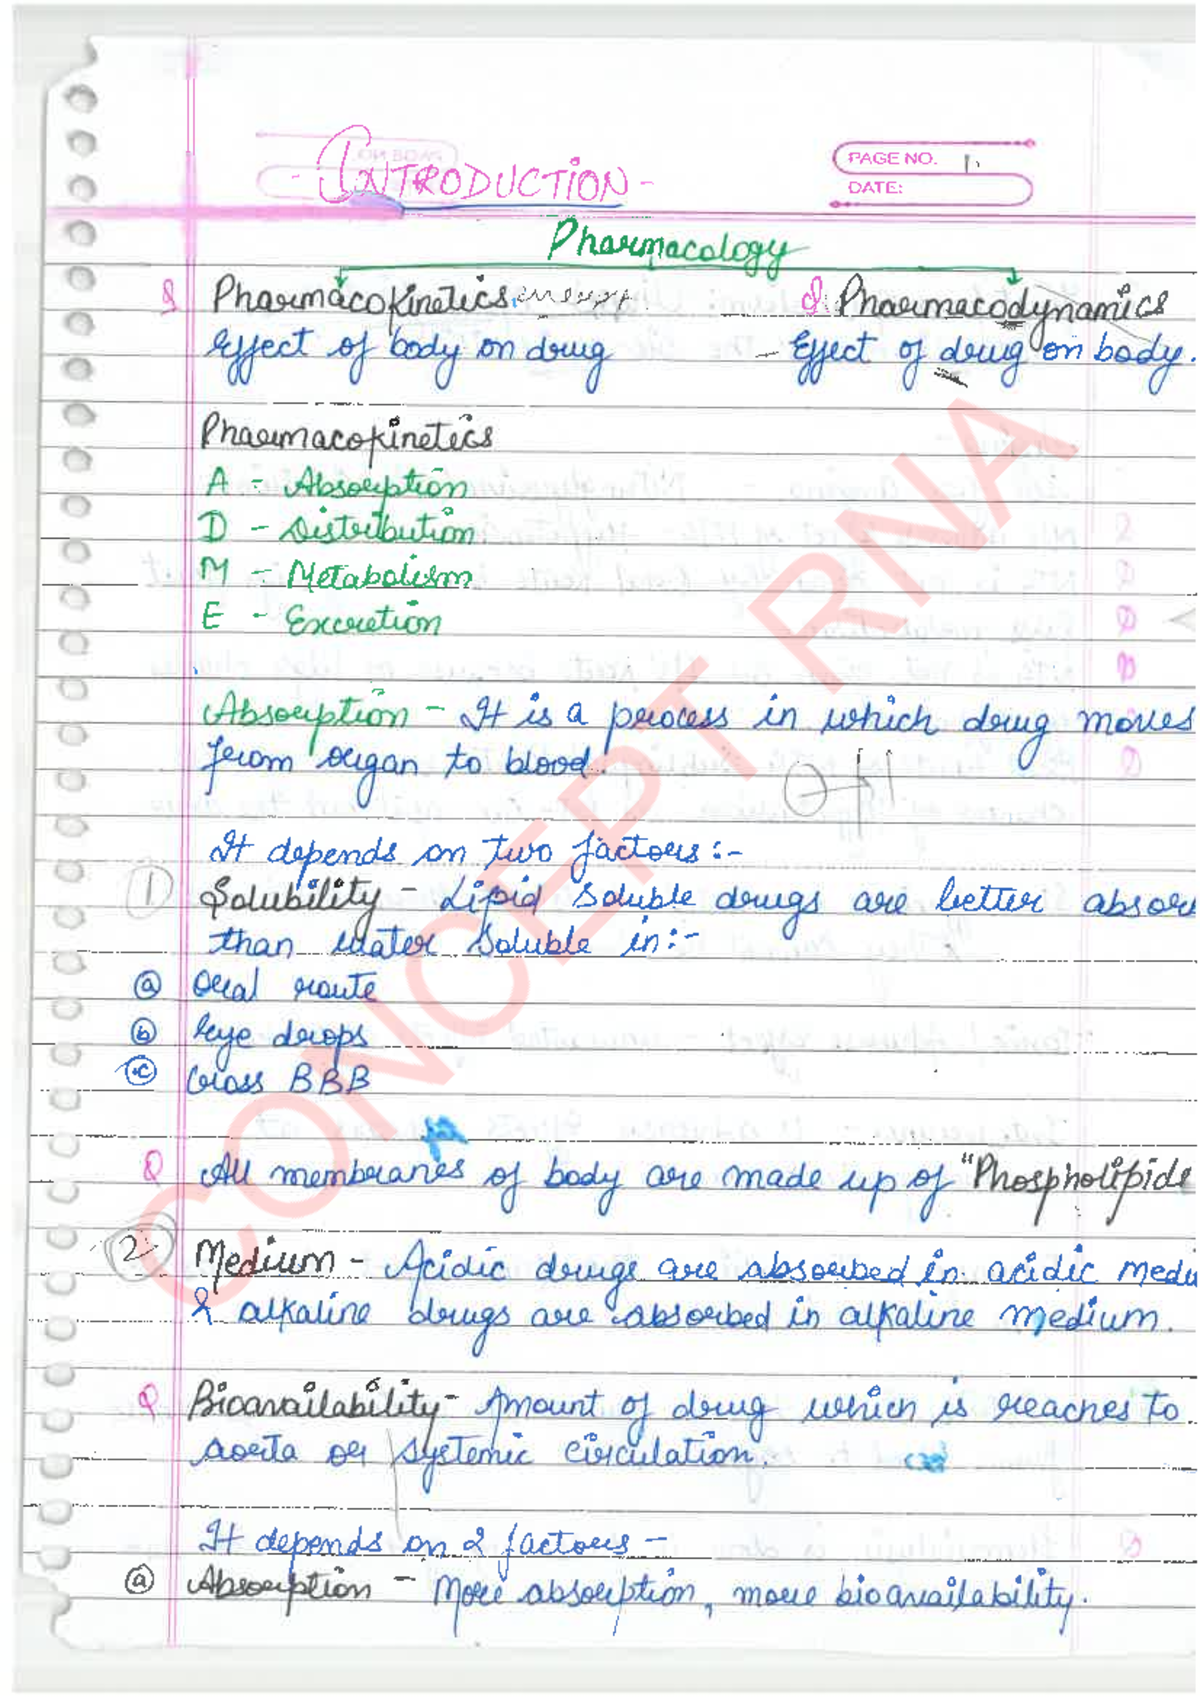 PAGE NO. 1.
DATE:
- INTRODUCTION -
Pharmacology
Pharmacokinetics
Pharmacodynamics
Effect of body on drug
- Effect of drug on body.
Pharmacokinetics
A - Absorption
D - Distribution
M - Metabolism
E - Excretion
Absorption - It is a process in which drug moves
from organ to blood.
It depends on two factors :-
1 Solubility - Lipid soluble drugs are better absor
than water soluble in :-
a Oral route
b Eye drops
c Cross BBB
Q All membranes of body are made up of "Phospholipids
2 Medium - Acidic drugs are absorbed in acidic medi
& alkaline drugs are absorbed in alkaline medium.
Q Bioavailability - Amount of drug which is reaches to
aorta or systemic circulation.
It depends on 2 factors -
a Absorption - More absorption, more bioavailability.
CONCEPT RNA